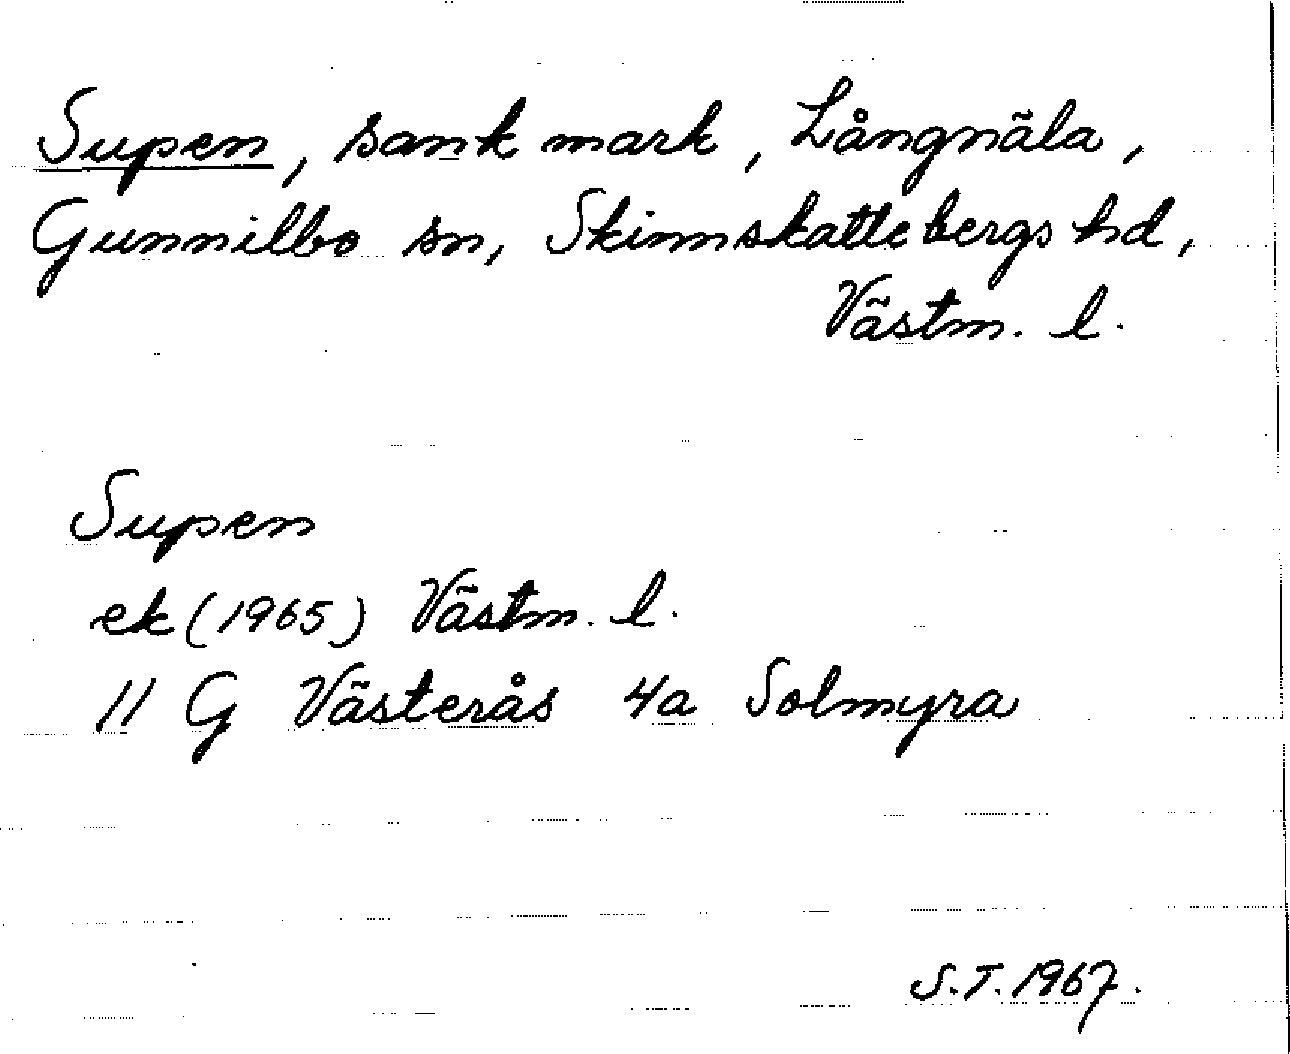 Supen, sank mark, Långnäla,
Gunnilbo sn, Skinnskattebergs hd,
Västm. l.
Supen
ek (1965) Västm. l.
11 G Västerås 4a Solmyra
S.T. 1967.